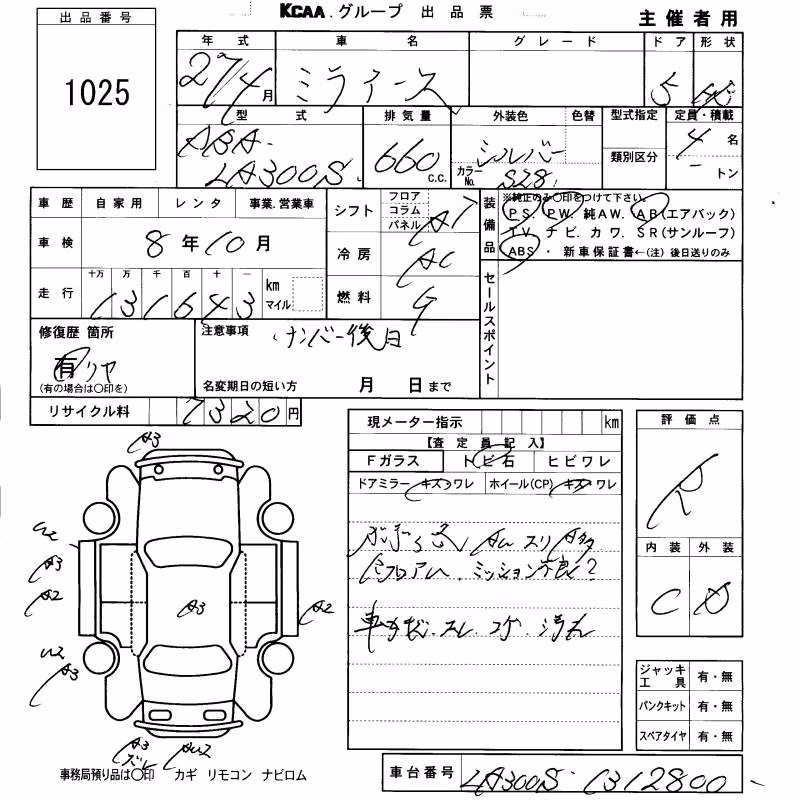 KCAA.グループ 出品票
主催者用
出品番号
1025
年式 車名 グレード ドア 形状
27/4月 ミライース 5
型式 排気量 外装色 色替 型式指定 定員・積載
ABA-
LA300S 660 c.c. シルバー 4名
カラーNo. S28 類別区分 - トン
車歴 自家用 レンタ 事業.営業車
シフト フロア コラム パネル AT
装備品 ※純正のみ〇印をつけて下さい。
PS. PW. 純AW. AB(エアバック)
TV. ナビ. カワ. SR(サンルーフ)
ABS ・ 新車保証書←(注) 後日送りのみ
車検 8年10月
冷房 AC
走行 十万 万 千 百 十 一
131643 km マイル
燃料 G
セールスポイント
修復歴 箇所
有 リヤ
(有の場合は〇印を)
注意事項 ナンバー後日
名変期日の短い方 月 日まで
リサイクル料 7320円
現メーター指示 km
【査定員記入】
Fガラス トビ石 ヒビワレ
ドアミラー キズ ワレ ホイール(CP) キズ ワレ
ミッション不良?
車内 スレ コゲ 汚れ
評価点
R
内装 外装
C D
ジャッキ工具 有・無
パンクキット 有・無
スペアタイヤ 有・無
A3
A3
A2
A3
A2
A3
A3
ズレ
事務局預り品は〇印 カギ リモコン ナビロム
車台番号 LA300S-1312800